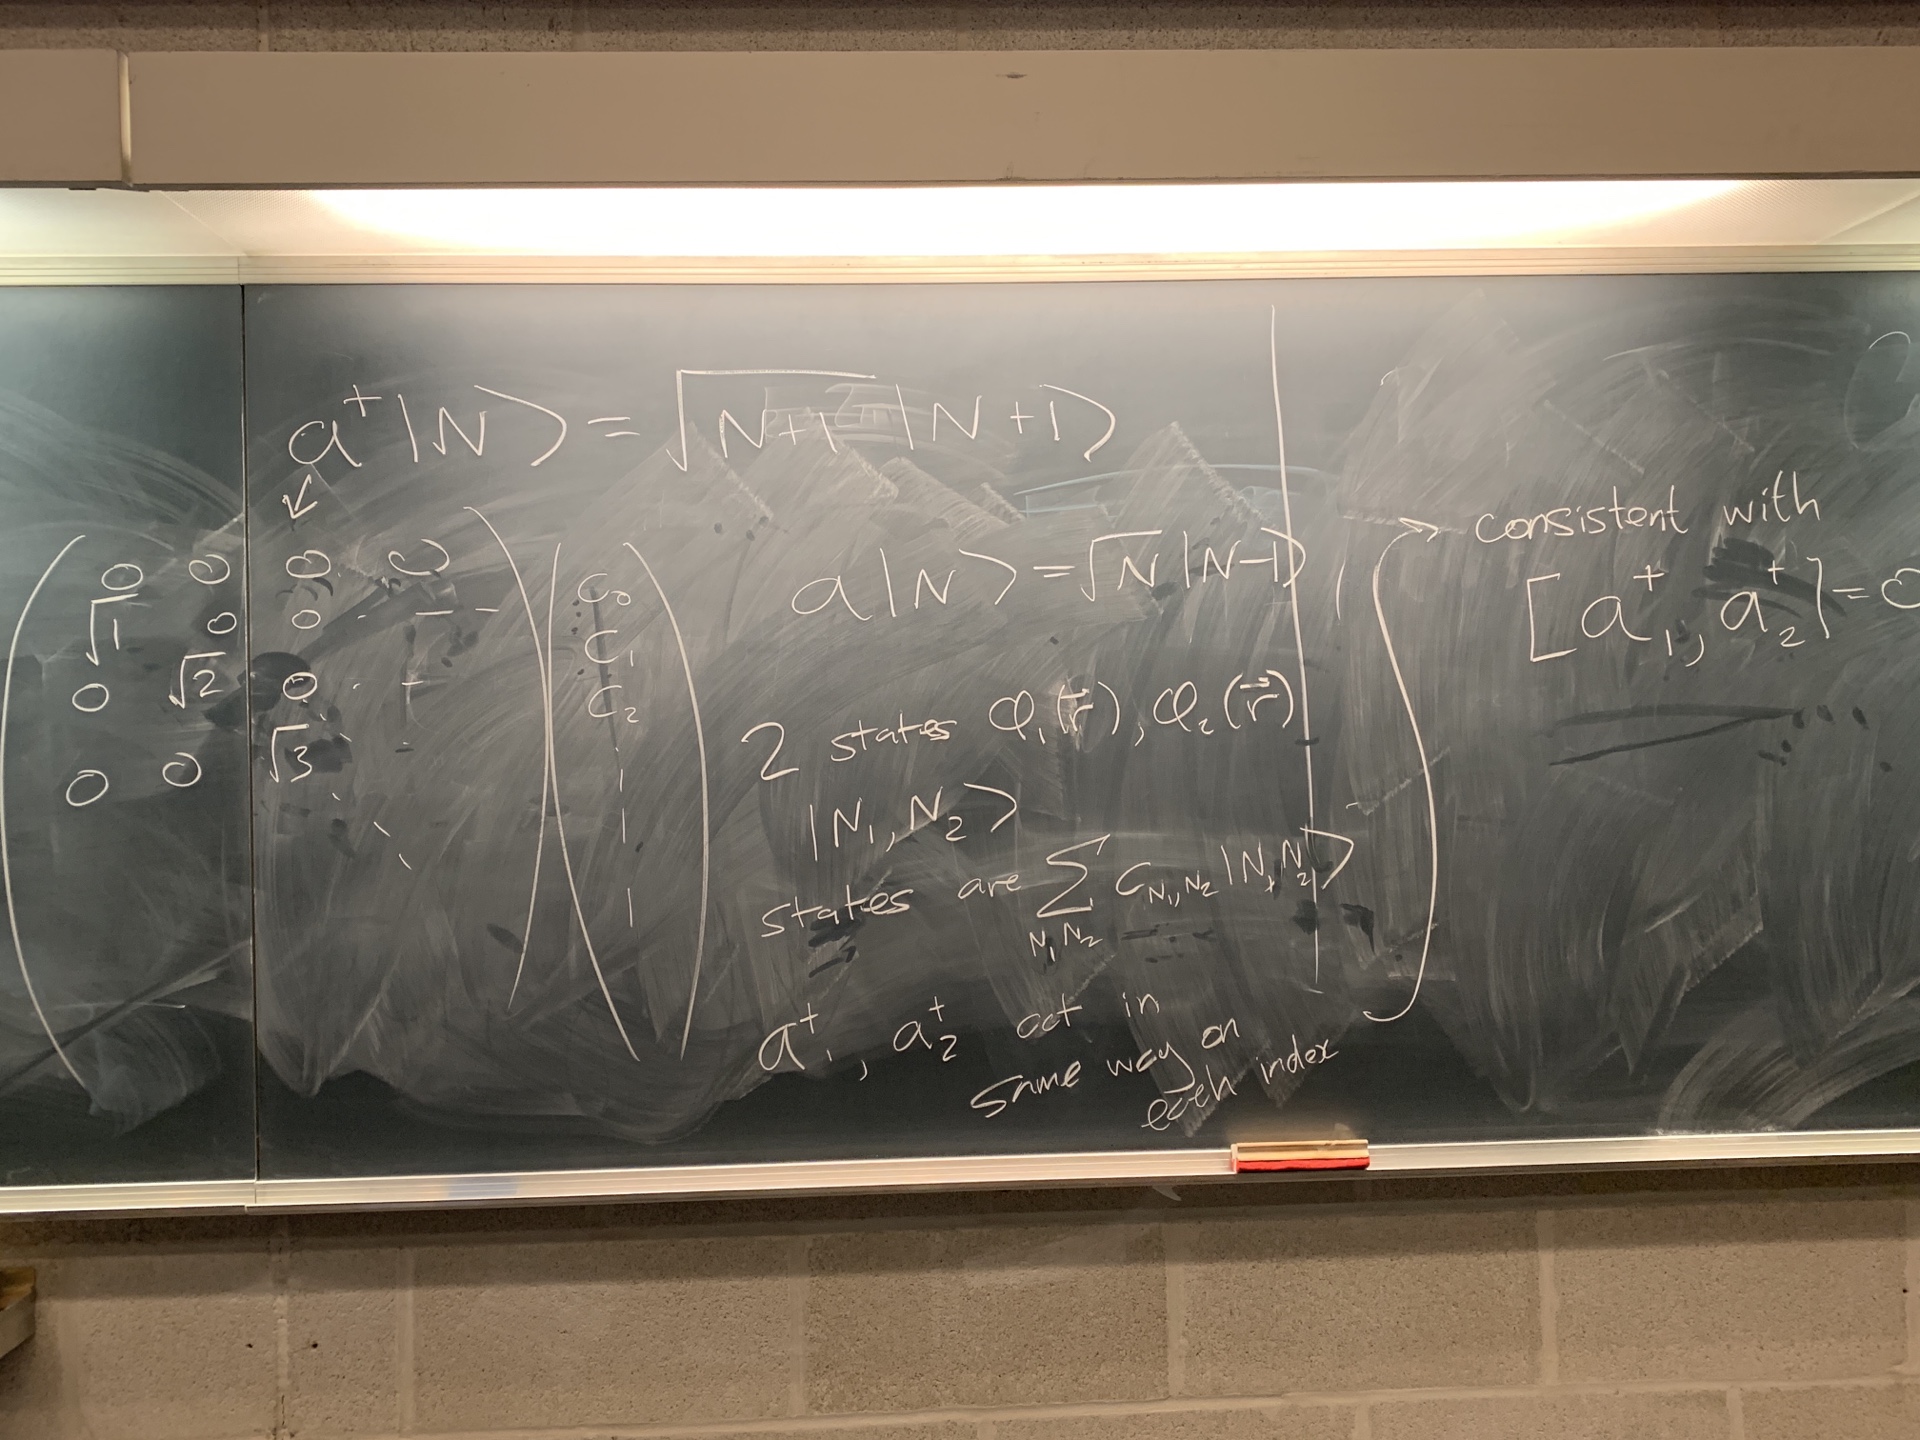 a⁺|N⟩ = √(N+1) |N+1⟩
↙
0 0 0 0
√1 0 0 · – –
0 √2 0 · –
0 0 √3
C₀
C₁
C₂
a|N⟩ = √N |N-1⟩
2 states φ₁(r⃗), φ₂(r⃗)
|N₁, N₂⟩
states are ∑ C_{N₁,N₂} |N₁, N₂⟩
N₁ N₂
a⁺₁, a⁺₂ act in
same way on
each index
→ consistent with
[a⁺₁, a⁺₂] = 0